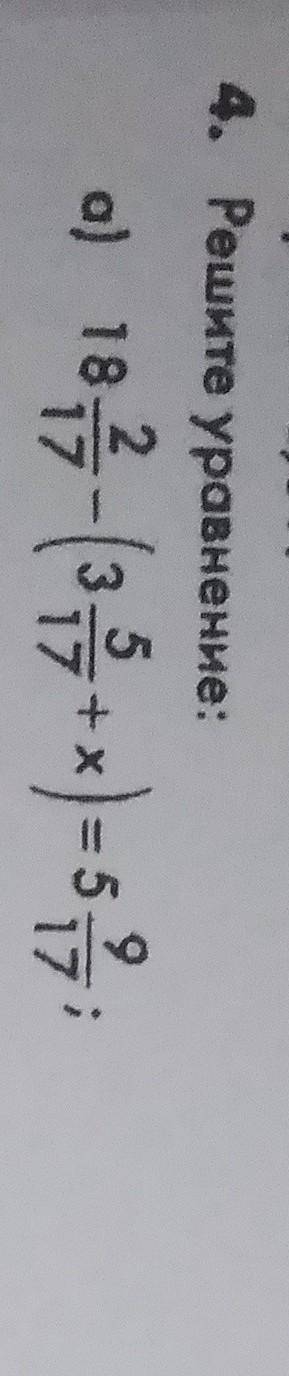 4. Решите уравнение:
а) 18 2/17 − (3 5/17 + x) = 5 9/17;